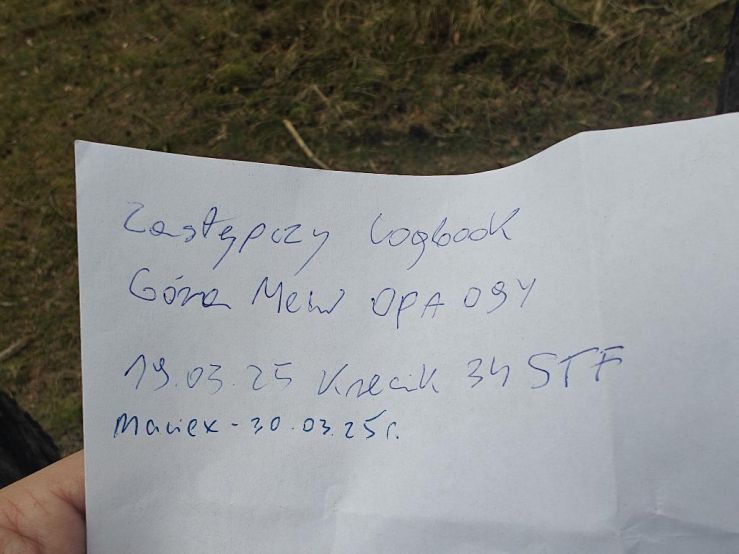 Zastępczy Logbook
Góra Mew OPA 09Y
19.03.25 Krecik 34 STF
Maciex - 30.03.25r.